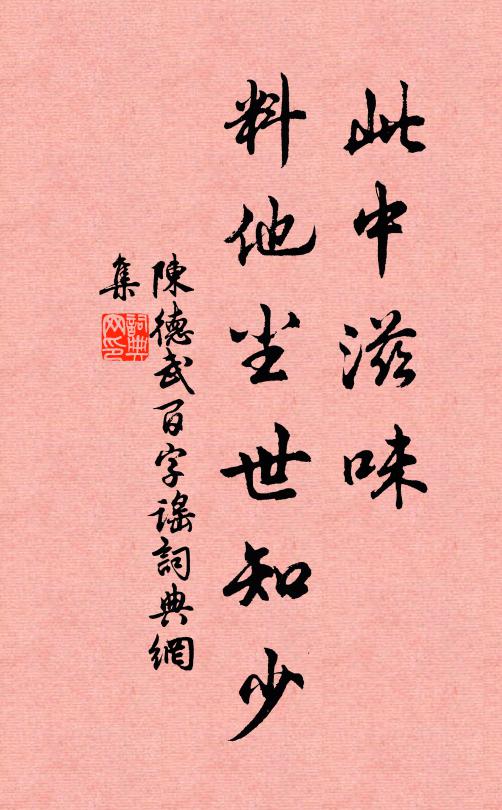 此中滋味
料他尘世知少
陳德武百字谣詞典網
集
詞典网印